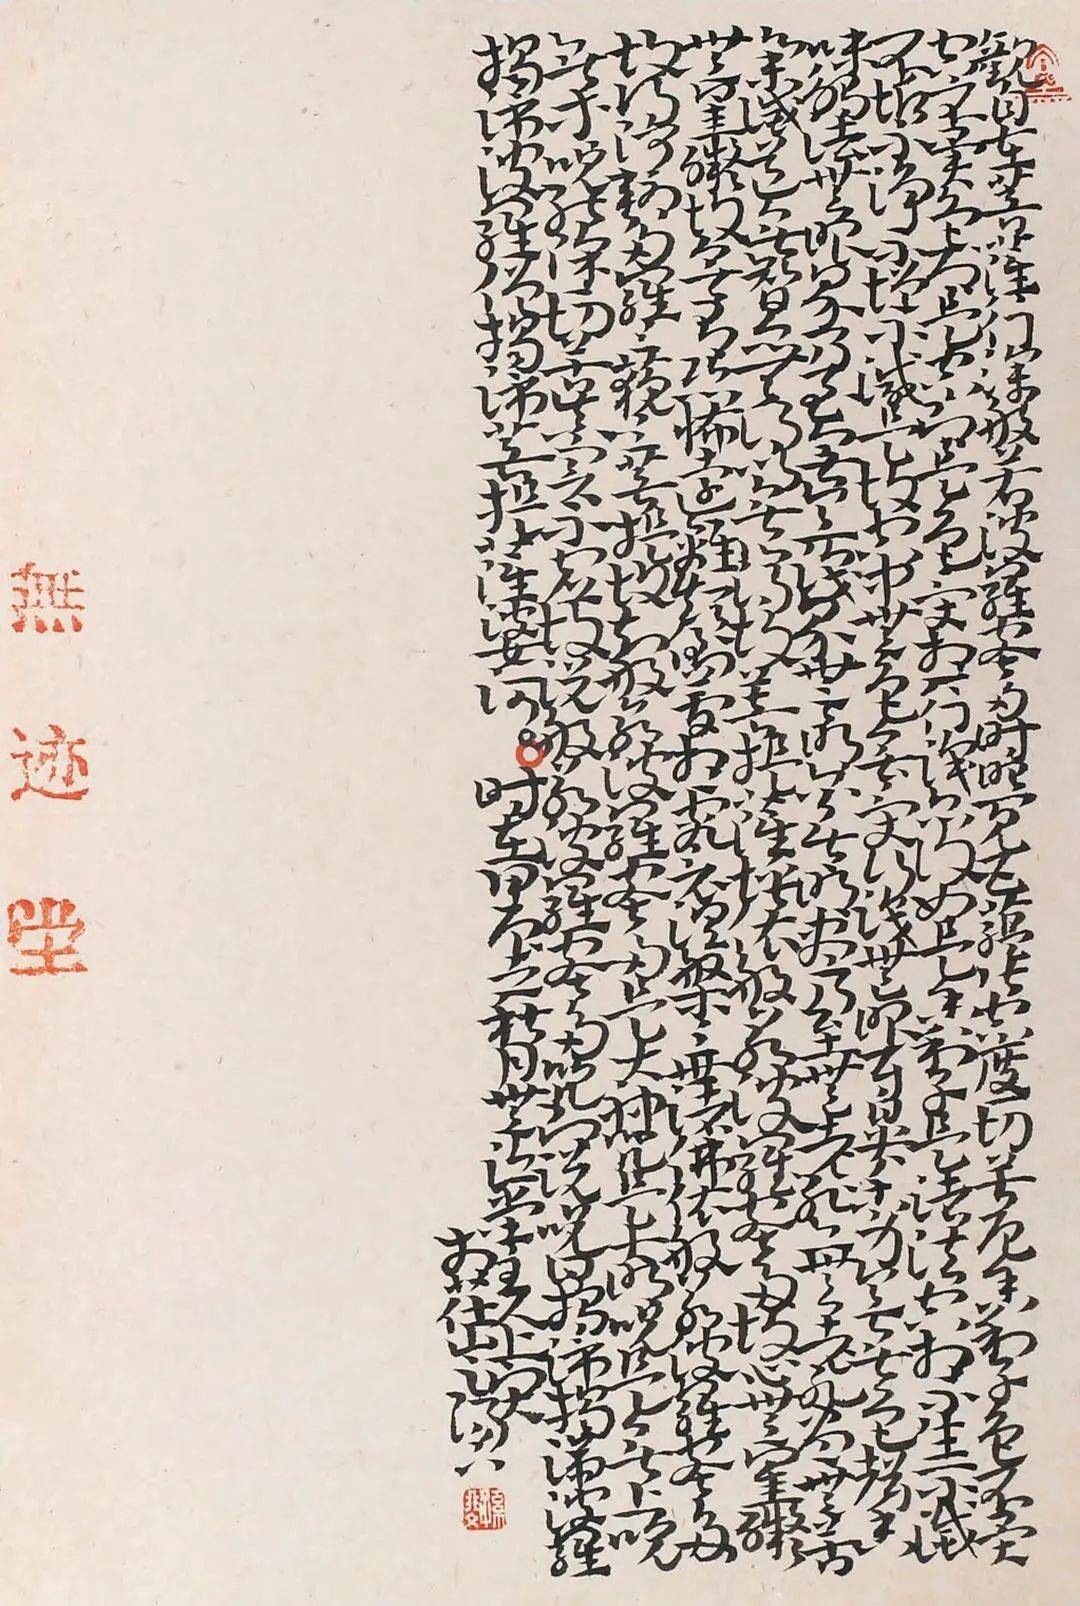 觀自在菩薩行深般若波羅蜜多時照見五蘊皆空度一切苦厄舍利子色不異
空空不異色色即是空空即是色受想行識亦復如是舍利子是諸法空相不生不滅
不垢不淨不增不減是故空中無色無受想行識無眼耳鼻舌身意無色聲香
味觸法無眼界乃至無意識界無無明亦無無明盡乃至無老死亦無老死盡無苦
集滅道無智亦無得以無所得故菩提薩埵依般若波羅蜜多故心無罣礙
無罣礙故無有恐怖遠離顛倒夢想究竟涅槃三世諸佛依般若波羅蜜多
故得阿耨多羅三藐三菩提故知般若波羅蜜多是大神咒是大明咒是無上咒
是無等等咒能除一切苦真實不虛故說般若波羅蜜多咒即說咒曰揭諦揭諦波羅
揭諦波羅僧揭諦菩提薩婆訶 時在甲辰之秋月
無迹坐